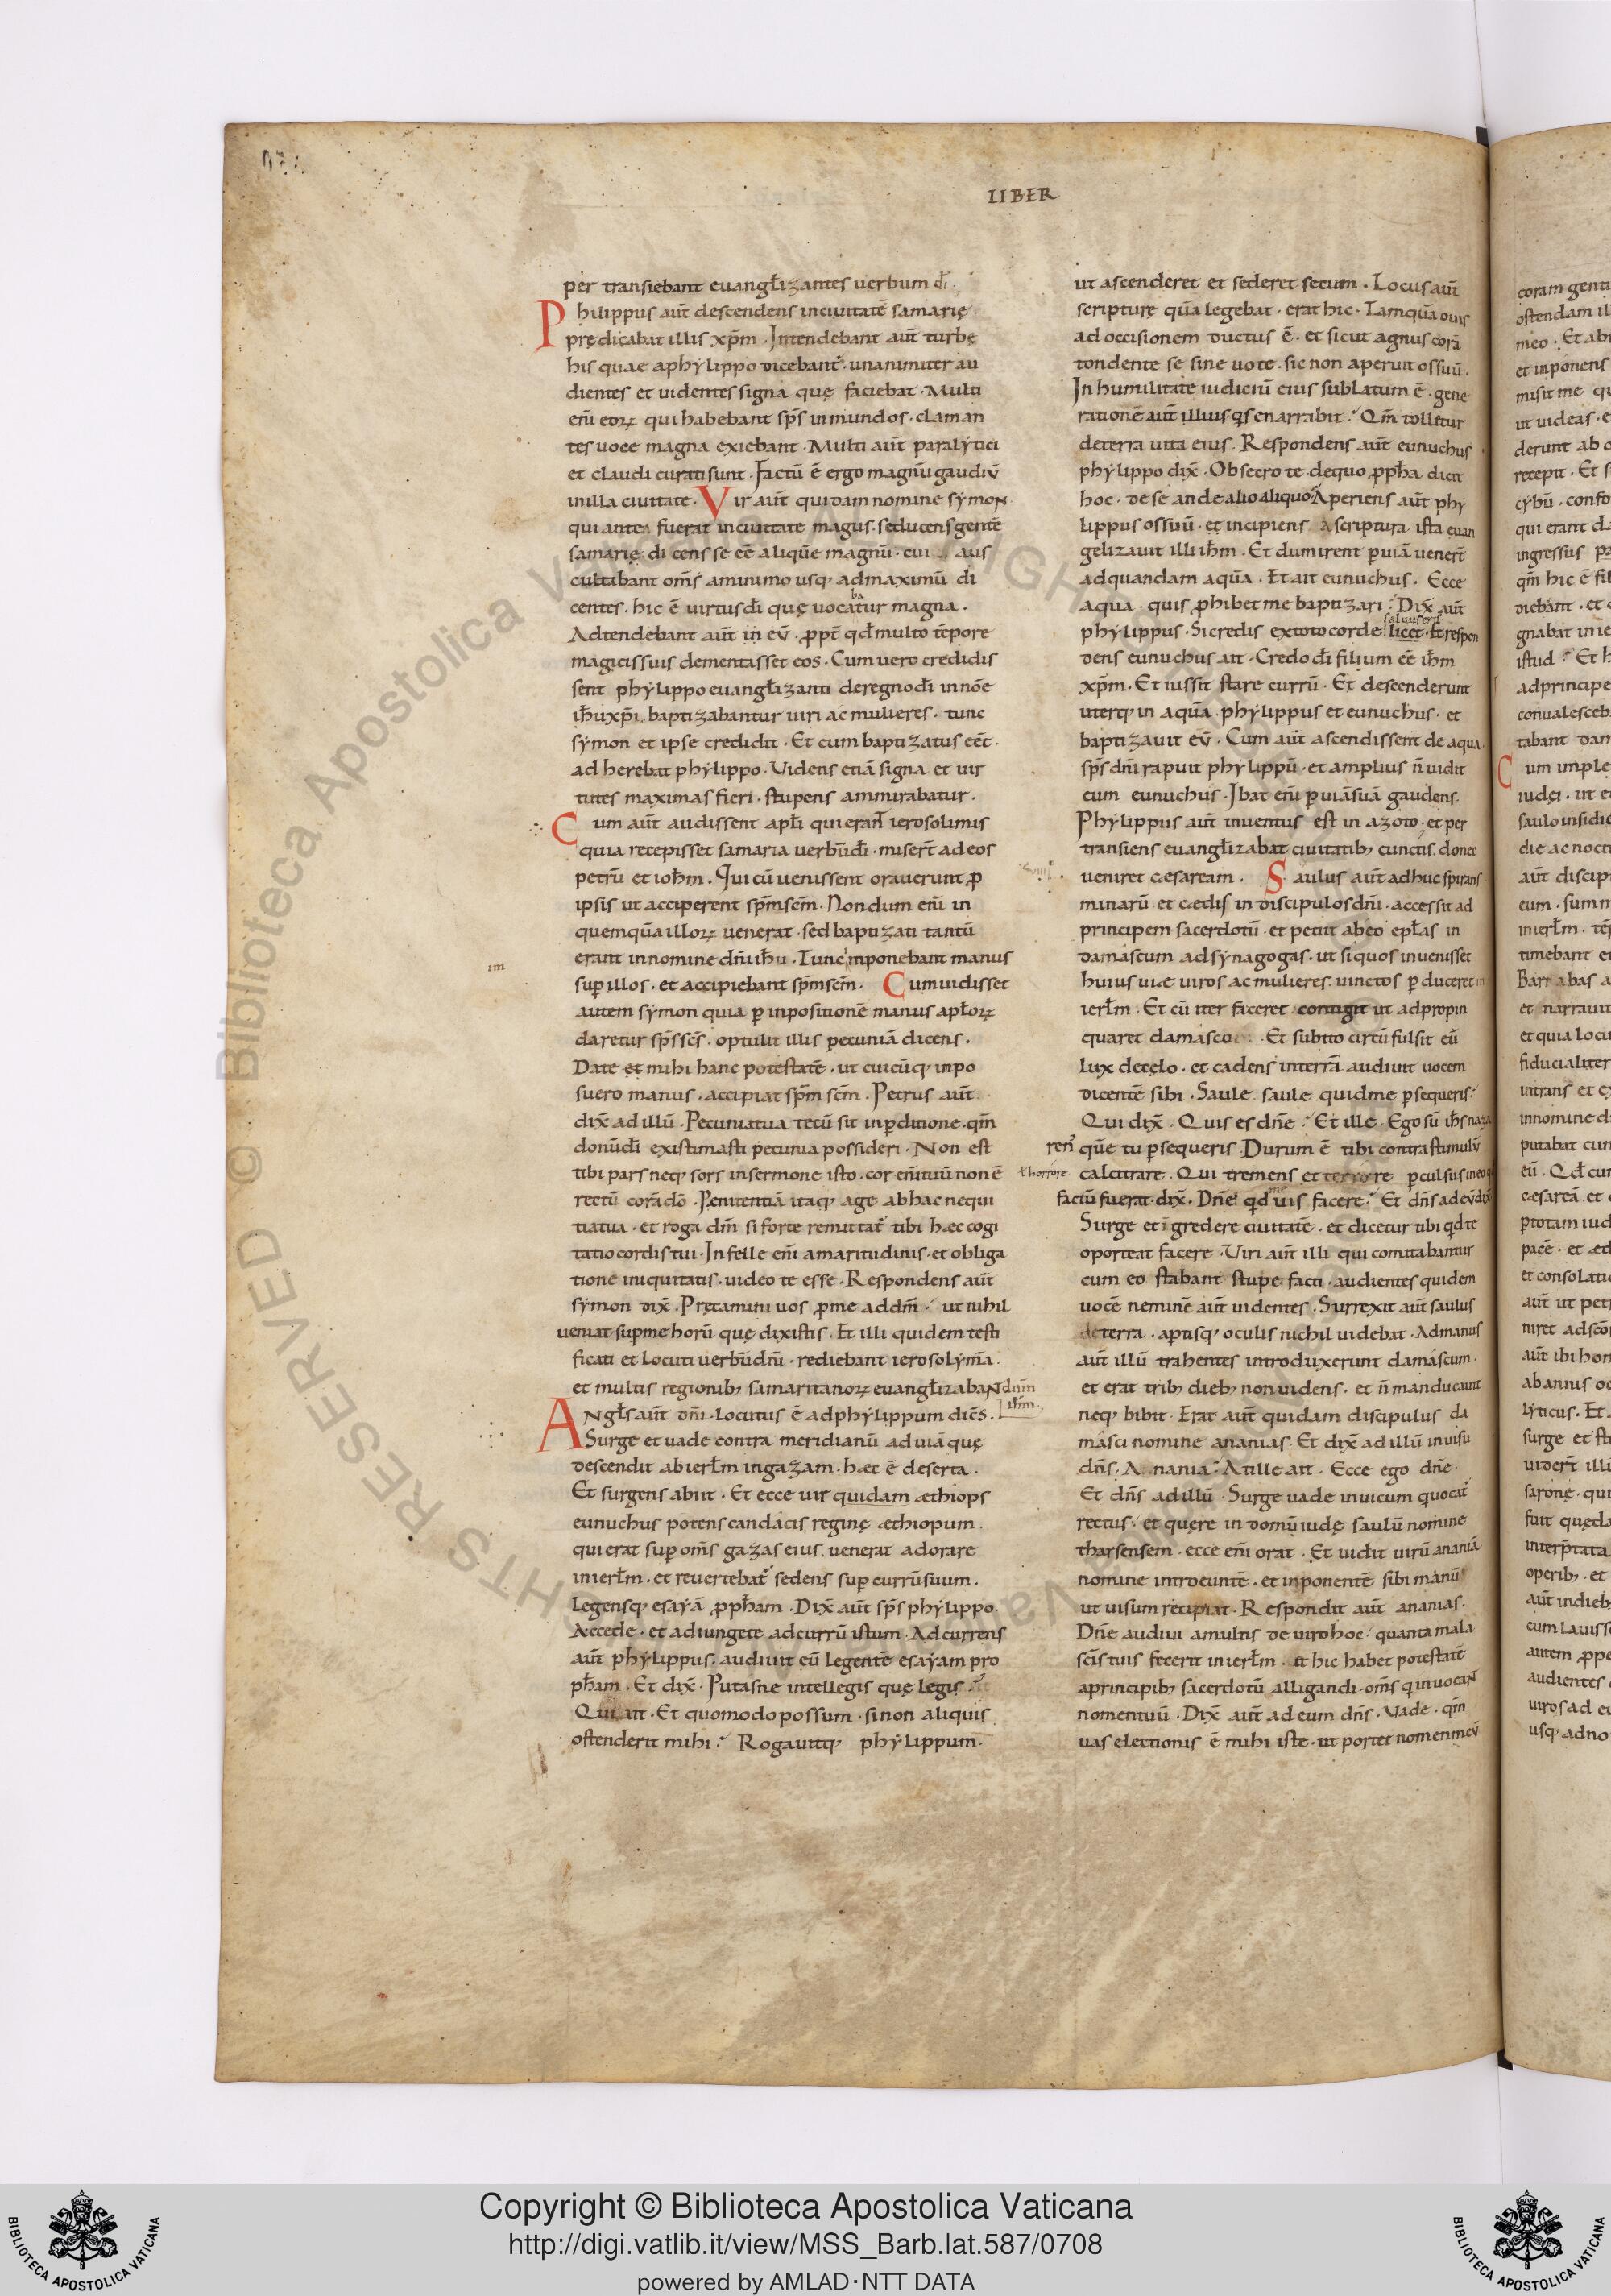 LIBER
per transiebant euangl̄izantes uerbum dī.
Philippus aūt descendens inciuitatē samarię
prędicabat illis xp̄m. Intendebant aūt turbę
his quae aphylippo dicebant᷑. unanimiter au
dientes et uidentes signa quę faciebat. Multi
enī eoꝝ qui habebant sp̄s inmundos. claman
tes uoce magna exiebant. Multi aūt paralytici
et claudi curati sunt. Factū ē ergo magnū gaudiū
inilla ciuitate. Vir aūt quidam nomine symon
qui antea fuerat inciuitate magus. seducens gentē
samarię. dicens se eē aliquē magnū. cui aus
cultabant om̄s aminimo usq; admaximū di
centes. hic ē uirtus dī quę uocatur magna.
ba
Adtendebant aūt in eū. ꝓpt̄ qd̄ multo tēpore
magicis suis dementasset eos. Cum uero credidis
sent phylippo euangl̄izanti deregno dī innōe
ih̄u xp̄i. baptizabantur uiri ac mulieres. tunc
symon et ipse credidit. Et cum baptizatus eēt.
ad herebat phylippo. Videns etiā signa et uir
tutes maximas fieri. stupens ammirabatur.
Cum aūt audissent apl̄i qui erant ierosolimis
quia recepisset samaria uerbū dī. miser̄t ad eos
petrū et ioh̄m. Qui cū uenissent orauerunt ꝓ
ipsis ut acciperent sp̄m sc̄m. Nondum enī in
quemquā illoꝝ uenerat. sed baptizati tantū
erant innomine dn̄i ih̄u. Tunc inponebant manus
im
suꝑ illos. et accipiebant sp̄m sc̄m. Cum uidisset
autem symon quia ꝑ inpositionē manus apl̄oꝝ
daretur sp̄s sc̄s. optulit illis pecuniā dicens.
Date et mihi hanc potestatē. ut cuicūq; inpo
suero manus. accipiat sp̄m sc̄m. Petrus aūt
dix̄ ad illū. Pecunia tua tecū sit inꝑditione. qm̄
donū dī existimasti pecunia possideri. Non est
tibi pars neq; sors insermone isto. cor enī tuū non ē
rectū corā dō. Pęnitentiā itaq; age abhac nequi
tia tua. et roga dm̄ si forte remittat᷑ tibi hæc cogi
tatio cordis tui. In felle enī amaritudinis. et obliga
tione iniquitatis. uideo te esse. Respondens aūt
symon dix̄. Pręcamini uos ꝓme addm̄. ut nihil
ueniat suꝑme horū quę dixistis. Et illi quidem testi
ficati et locuti uerbū dn̄i. rediebant ierosolymā.
et multis regionib; samaritanoꝝ euangl̄izabant dnm̄
ih̄m.
Angl̄s aūt dn̄i. locutus ē adphylippum dicēs.
Surge et uade contra meridianū ad uiā quę
descendit abierl̄m ingazam. hæc ē deserta.
Et surgens abiit. Et ecce uir quidam æthiops
eunuchus potens candacis reginę æthiopum.
qui erat suꝑ om̄s gazas eius. uenerat adorare
inierl̄m. et reuertebat᷑ sedens suꝑ currū suum.
legensq; esayā ꝓph̄am. Dix̄ aūt sp̄s phylippo.
Accede. et adiungete adcurrū istum. Adcurrens
aūt phylippus. audiuit eū legentē esayam pro
ph̄am. Et dix̄. Putasne intellegis quę legis?
Qui ait. Et quomodo possum. si non aliquis
ostenderit mihi? Rogauitq; phylippum.
ut ascenderet et sederet secum. Locus aūt
scripturę quā legebat. erat hic. Tamquā ouis
ad occisionem ductus ē. et sicut agnus corā
tondente se sine uoce. sic non aperuit os suū.
In humilitate iudiciū eius sublatum ē. gene
rationē aūt illius q̄s enarrabit? Qm̄ tolletur
deterra uita eius. Respondens aūt eunuchus
phylippo dix̄. Obsecro te. dequo ꝓph̄a dicit
hoc. de se an de alio aliquo? Aperiens aūt phy
lippus os suū. et incipiens a scriptura ista euan
gelizauit illi ih̄m. Et dum irent ꝑ uiā uener̄t
adquandam aquā. Et ait eunuchus. Ecce
aqua. quis ꝓhibet me baptizari? Dix̄ aūt
phylippus. Si credis extoto corde licet. Et respon
dens eunuchus ait. Credo dī filium eē ih̄m
xp̄m. Et iussit stare currū. Et descenderunt
uterq; in aquā. phylippus et eunuchus. et
baptizauit eū. Cum aūt ascendissent de aqua.
sp̄s dn̄i rapuit phylippū. et amplius n̄ uidit
eum eunuchus. Ibat enī ꝑ uiā suā gaudens.
Phylippus aūt inuentus est in azoto. et per
transiens euangl̄izabat ciuitatib; cunctis. donec
ueniret cæsaream. Saulus aūt adhuc spirans
minarū et cædis in discipulos dn̄i. accessit ad
principem sacerdotū. et petiit ab eo epl̄as in
damascum ad synagogas. ut si quos inuenisset
huius uiæ uiros ac mulieres. uinctos ꝑduceret in
ierl̄m. Et cū iter faceret contigit ut adpropin
quaret damasco. Et subito circū fulsit eū
lux decęlo. et cadens interrā. audiuit uocem
dicentē sibi. Saule saule quidme ꝑsequeris?
Qui dix̄. Quis es dn̄e? Et ille. Ego sū ih̄s naza
ren᷑ quē tu ꝑsequeris. Durum ē tibi contra stimulū
ł horrore calcitrare. Qui tremens et terrore ꝑculsus in eo qd̄
factū fuerat. dix̄. Dn̄e qd̄ me uis facere? Et dn̄s ad eū dix̄
Surge et īgredere ciuitatē. et dicetur tibi qd̄ te
oporteat facere. Viri aūt illi qui comitabantur
cum eo stabant stupefacti. audientes quidem
uocē neminē aūt uidentes. Surrexit aūt saulus
deterra. aꝑtisq; oculis nichil uidebat. Admanus
aūt illū trahentes introduxerunt damascum.
et erat trib; dieb; non uidens. et n̄ manducauit
neq; bibit. Erat aūt quidam discipulus da
masci nomine ananias. Et dix̄ ad illū in uisu
dn̄s. Anania? At ille ait. Ecce ego dn̄e.
Et dn̄s ad illū. Surge uade inuicum quocat᷑
rectus. et quęre in domū iudę saulū nomine
tharsensem. ecce enī orat. Et uidit uirū ananiā
nomine introeuntē. et inponentē sibi manū
ut uisum recipiat. Respondit aūt ananias.
Dn̄e audiui amultis de uiro hoc. quanta mala
sc̄is tuis fecerit inierl̄m. et hic habet potestatē
aprincipib; sacerdotū alligandi. om̄s q̄ inuocant
nomen tuū. Dix̄ aūt ad eum dn̄s. Vade. qm̄
uas electionis ē mihi iste. ut portet nomen meū
coram genti
ostendam il
meo. Et abi
et inponens
misit me qu
ut uideas. e
derunt ab o
recepit. Et s
cybū. confo
qui erant da
ingressus
qm̄ hic ē fil
diebant. et
gnabat in ie
istud? Et h
adprincipe
conualesceb
tabant dam
Cum imple
iudęi. ut e
saulo insidi
die ac noct
aūt discip
eum. summ
inierl̄m. tē
timebant e
Barnabas a
et narrauit
et quia locu
fiducialiter
intrans et ex
innomine d
putabat cum
eū. Qd̄ cum
cæsareā. et
ꝑtotam iud
pacē. et æd
et consolati
aūt ut petr
niret ad sc̄o
aūt ibi hom
abannis oc
lyticus. Et
surge et st
uider̄t illi
saronę. qui
fuit quęda
interp̄tata
operib; et
aūt indieb;
cum lauiss
autem ꝓpe
audientes
uiros ad eu
usq; adno
Copyright © Biblioteca Apostolica Vaticana
http://digi.vatlib.it/view/MSS_Barb.lat.587/0708
powered by AMLAD·NTT DATA
BIBLIOTECA APOSTOLICA VATICANA
BIBLIOTECA APOSTOLICA VATICANA